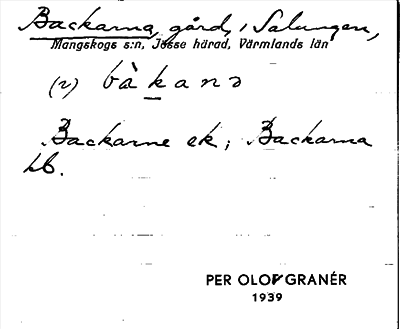 Backarna, gård, i Salungen,
Mangskogs s:n, Jösse härad, Värmlands län
(v) bàkanɔ
Backarne ek; Backarna
hb.
PER OLOF GRANÉR
1939